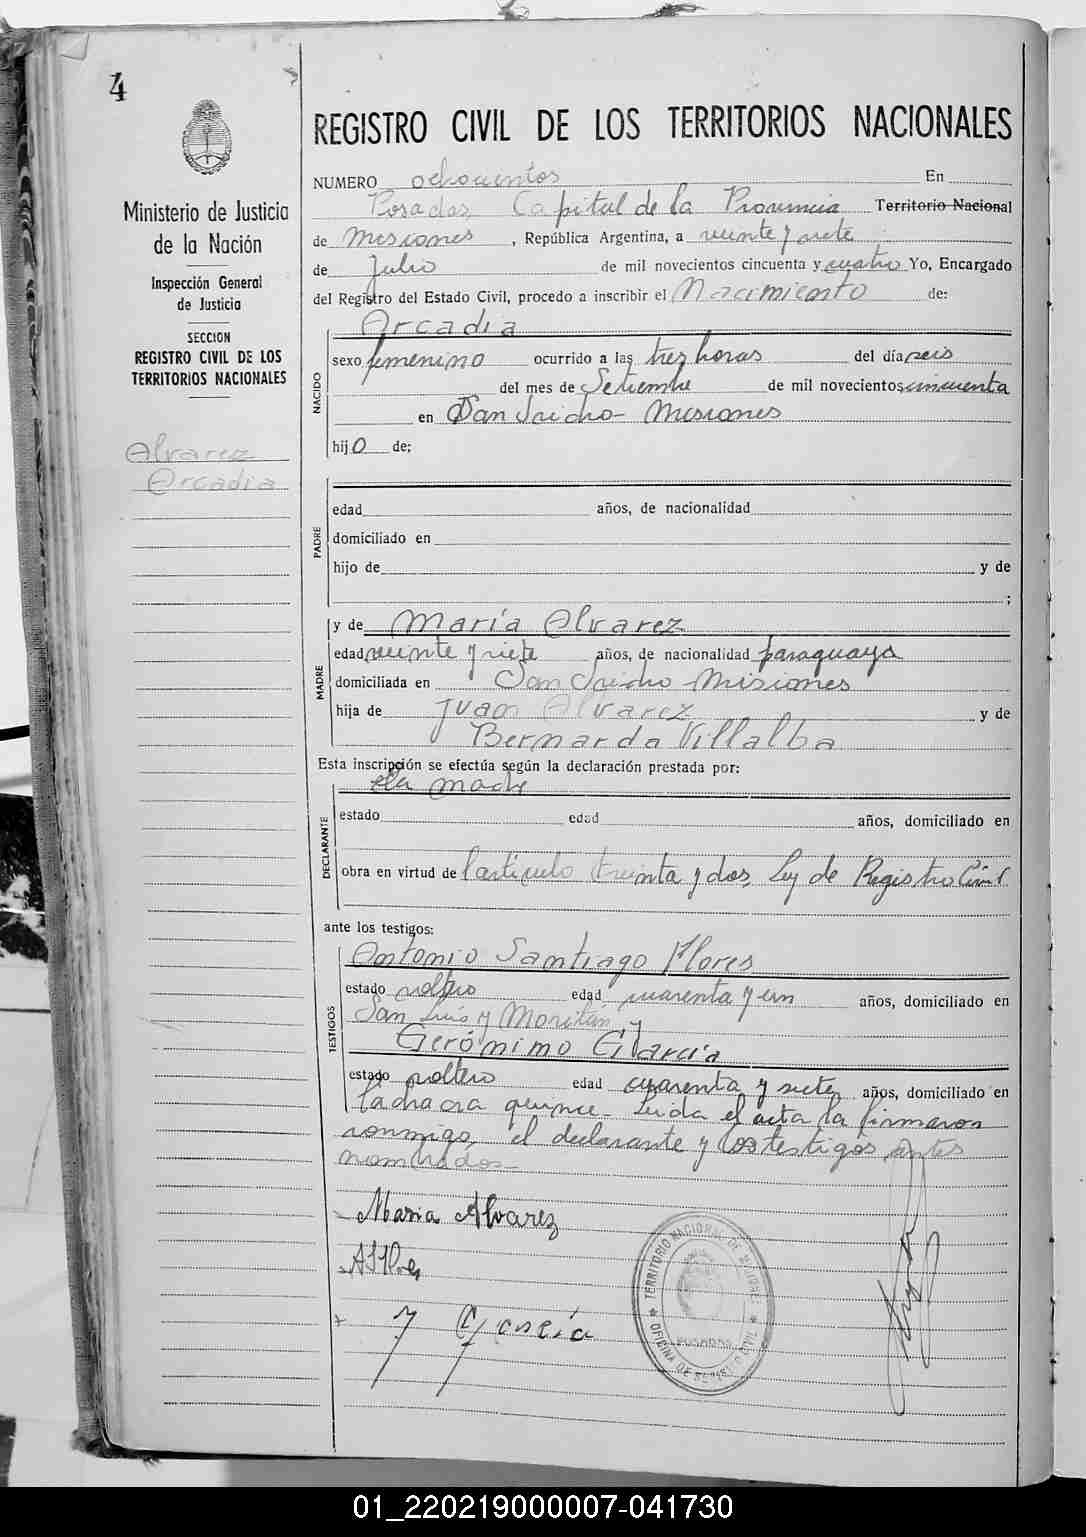 4
Ministerio de Justicia
de la Nación
Inspección General
de Justicia
SECCION
REGISTRO CIVIL DE LOS
TERRITORIOS NACIONALES
Alvarez
Arcadia
REGISTRO CIVIL DE LOS TERRITORIOS NACIONALES
NUMERO ochocientos En
Posadas, Capital de la Provincia Territorio Nacional
de Misiones, República Argentina, a veinte y siete
de Julio de mil novecientos cincuenta y cuatro Yo, Encargado
del Registro del Estado Civil, procedo a inscribir el Nacimiento de:
Arcadia
NACIDO
sexo femenino ocurrido a las tres horas del día seis
del mes de Setiembre de mil novecientos cincuenta
en San Isidro - Misiones
hijo de;
PADRE
edad años, de nacionalidad
domiciliado en
hijo de y de
;
MADRE
y de María Alvarez
edad veinte y siete años, de nacionalidad paraguaya
domiciliada en San Isidro - Misiones
hija de Juan Alvarez y de
Bernarda Villalba
Esta inscripción se efectúa según la declaración prestada por:
DECLARANTE
la madre
estado edad años, domiciliado en
obra en virtud de l artículo treinta y dos, Ley de Registro Civil
ante los testigos:
TESTIGOS
Antonio Santiago Flores
estado soltero edad cuarenta y un años, domiciliado en
San Luis y Moritan y
Gerónimo García
estado soltero edad cuarenta y siete años, domiciliado en
la chacra quince. Leída el acta la firmaron
conmigo, el declarante y los testigos antes
nombrados-
Maria Alvarez
ASFlores
J Garcia
TERRITORIO NACIONAL DE MISIONES
POSADAS
OFICINA DE REGISTRO CIVIL
01_220219000007-041730